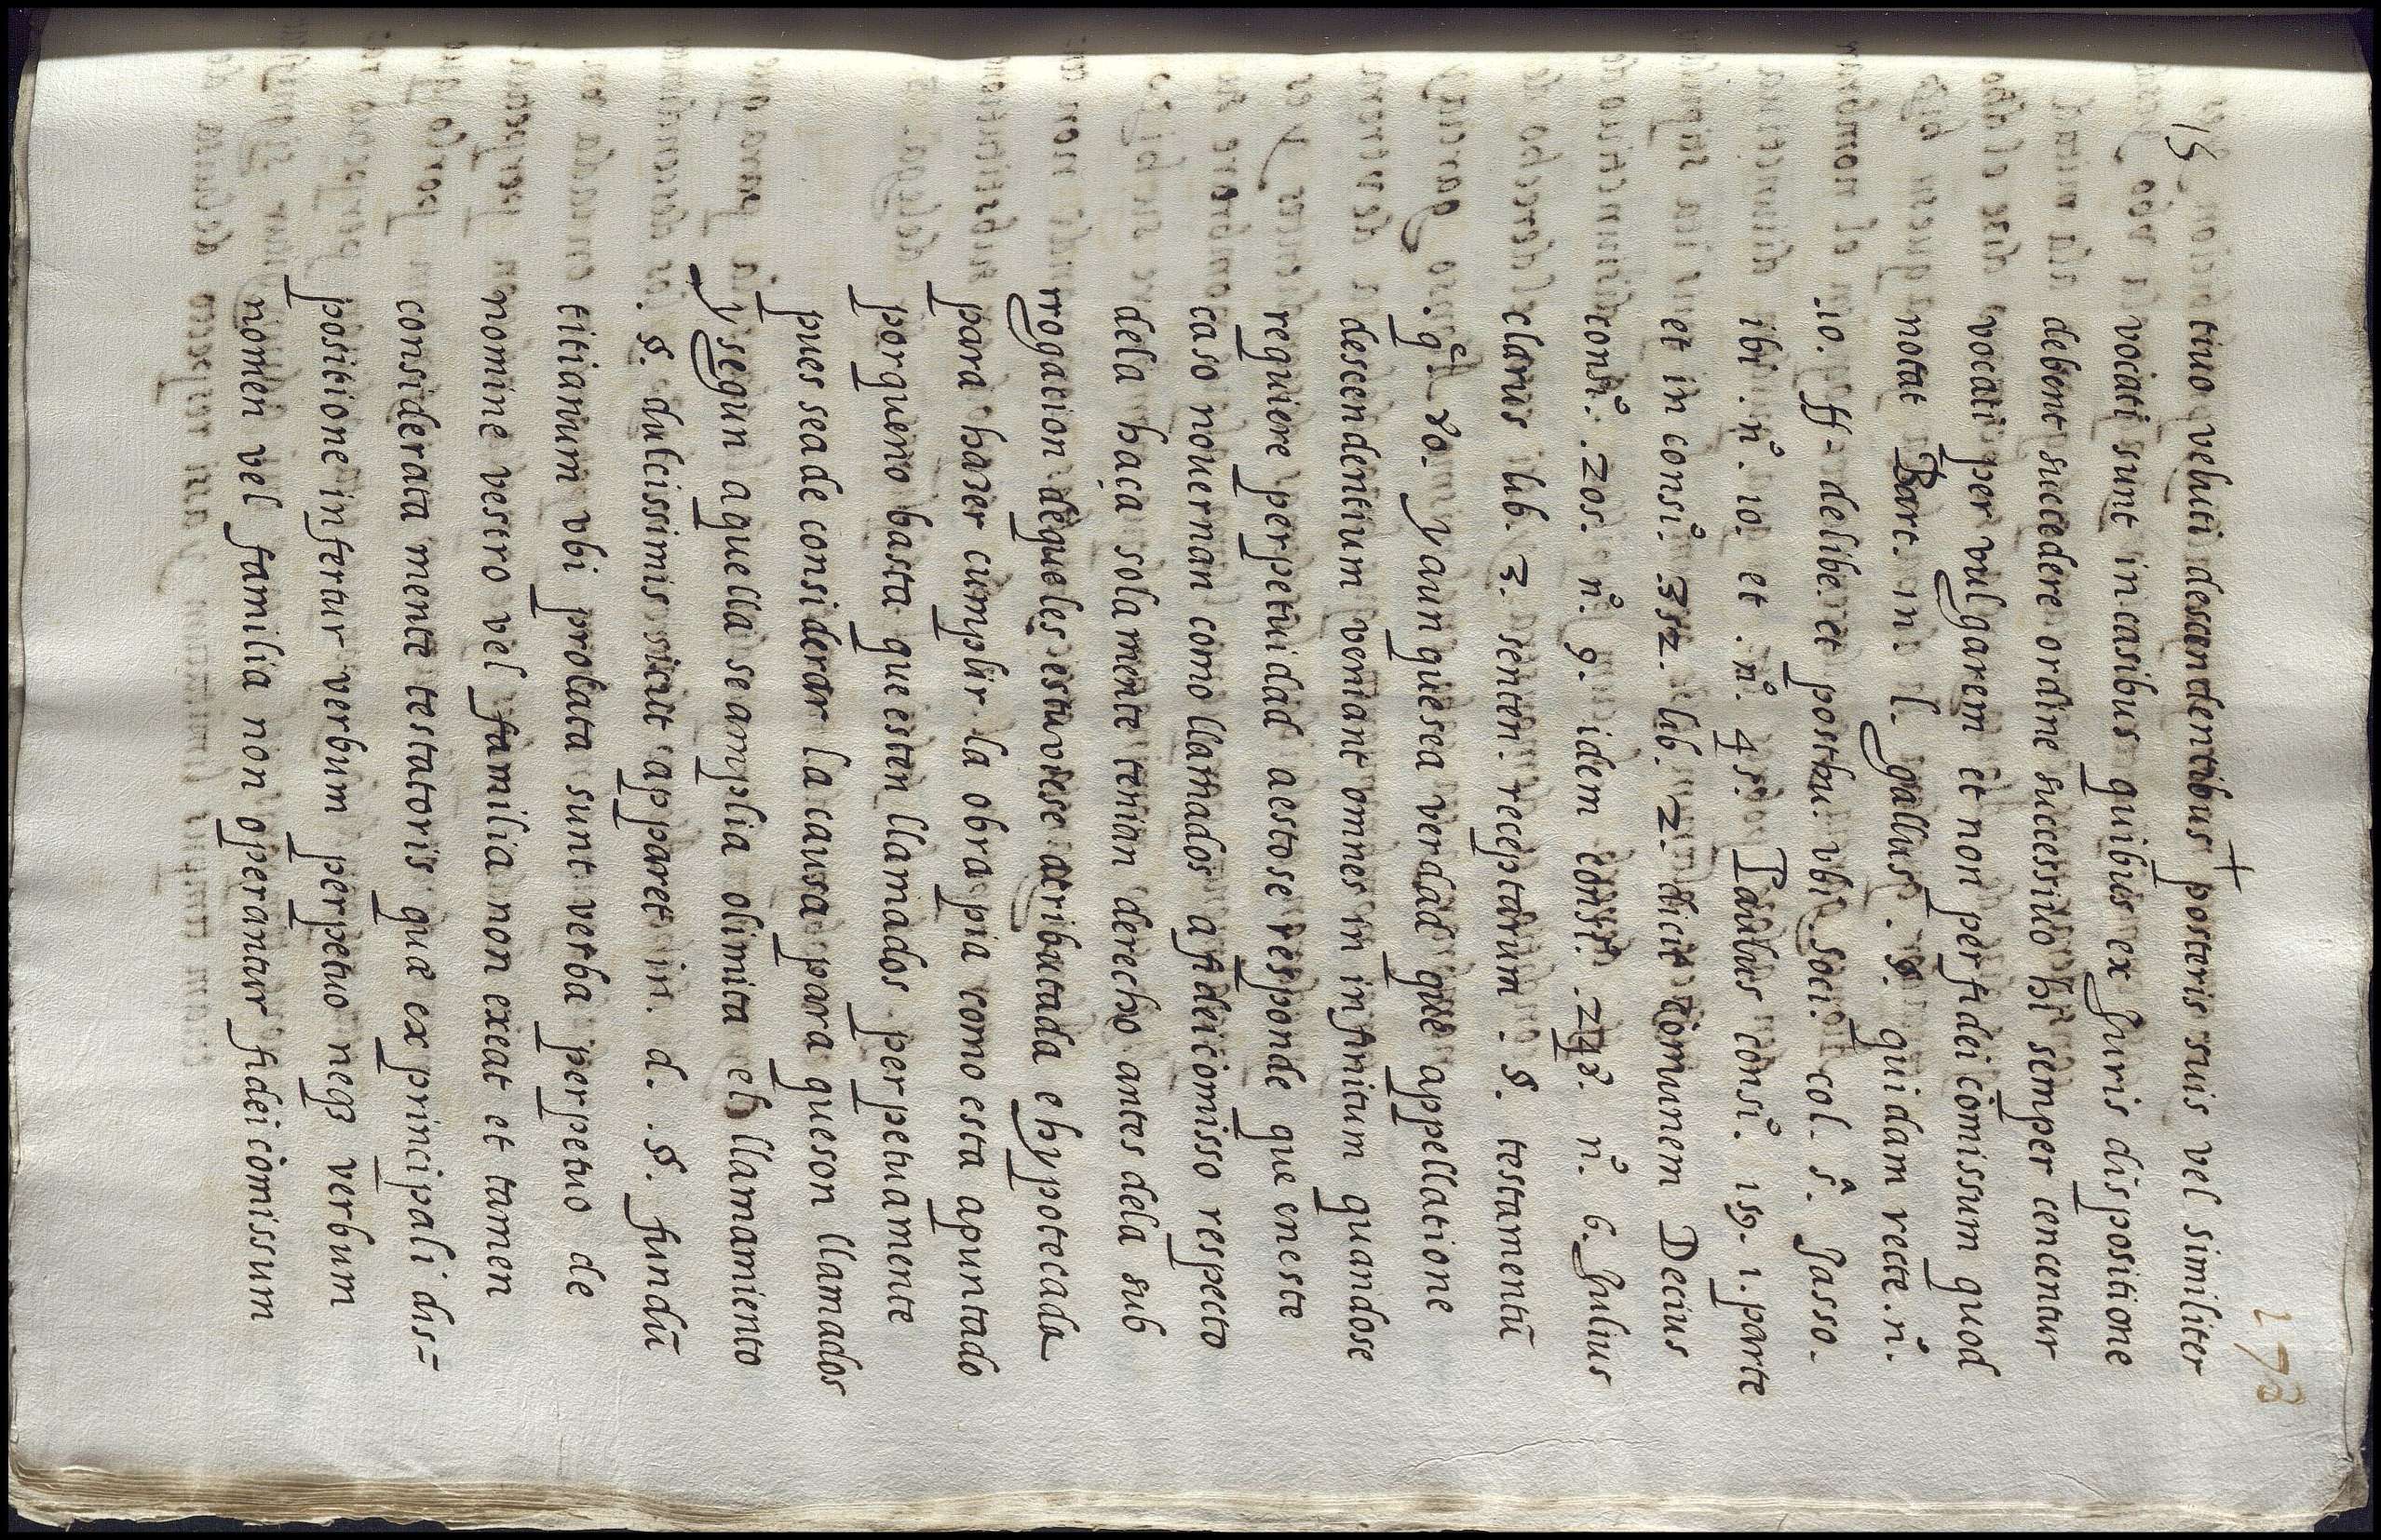 178
15
+
tiuo veluti descendentibus posteris suis vel similiter
vocati sunt in casibus quibus ex Juris dispositione
debent succedere ordine successiuo hi semper censentur
vocati per vulgarem et non per fideicõmissum quod
notat Bart. in. l. gallus. §. quidam recte. nº.
.10. ff. de libe. et postu. vbi. soci. col. 5ª. Jasso.
ibi. nº. 10. et. nº. 45. Paulus consi. 159. 1. parte
et in consi. 352. lib. 2. dicit comunem Decius
consiº. 205. nº. 9. idem consiº. 248. nº. 6. Julius
clarus lib. 3. senten. receptarum. §. testamentũ
.q. 80. y aunque sea verdad que appellatione
descendentium veniant omnes in infinitum quandose
requiere perpetuidad aestose responde que eneste
caso nouernan como llamados a fideicomisso respecto
dela haça sola mente tenian derecho antes dela sub
rrogacion dequeles estuviese atributada e hypotecada
para hazer cumplir la obra pia como esta apuntado
porqueno basta que esten llamados perpetuamente
pues seade considerar la causa para queson llamados
y segun aquella seamplia olimita el llamamiento
. §. dulcissimis sicut apparet in. d. §. fundũ
titianum vbi prolata sunt verba perpetuo de
nomine vestro vel familia non exeat et tamen
considerata mente testatoris quæ ex principali dis=
positione infertur verbum perpetuo neqʒ verbum
nomen vel familia non operantur fideicõmissum